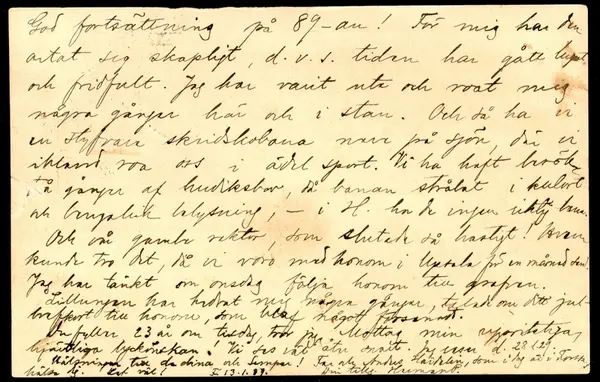 God fortsättning på 89-an! För mig har den
artat sig skapligt, d.v.s. tiden har gått
och fridfullt. Jag har varit ute och roat mig
några gånger här och i stan. Och så ha vi
en styfvare skridskobana nere på sjön, där vi
ibland roa oss i ädel sport. Vi ha haft besök
gånger af hudiksbor, då banan strålat i kulört
och bengalisk belysning, – i H. hade ingen
Och vår gamle rektor, som slutade så hastigt! Hvem
kunde tro det, då vi voro med honom i Upsala för en månad sen!
Jag har tänkt om onsdag följa honom till grafven.
Lillungen har hedrat mig några gånger, om ditt jul
brefkort till honom, som blef något försenadt.
Du fyller 23 år om tisdag, tror jag. Mottag min uppriktiga,
hjärtliga lyckönskan! Vi ses väl åter snart. Jag 28.1.29.
Hälsningar till de dina och
hälsa Est väl! F 13.1.89. Din tillg.